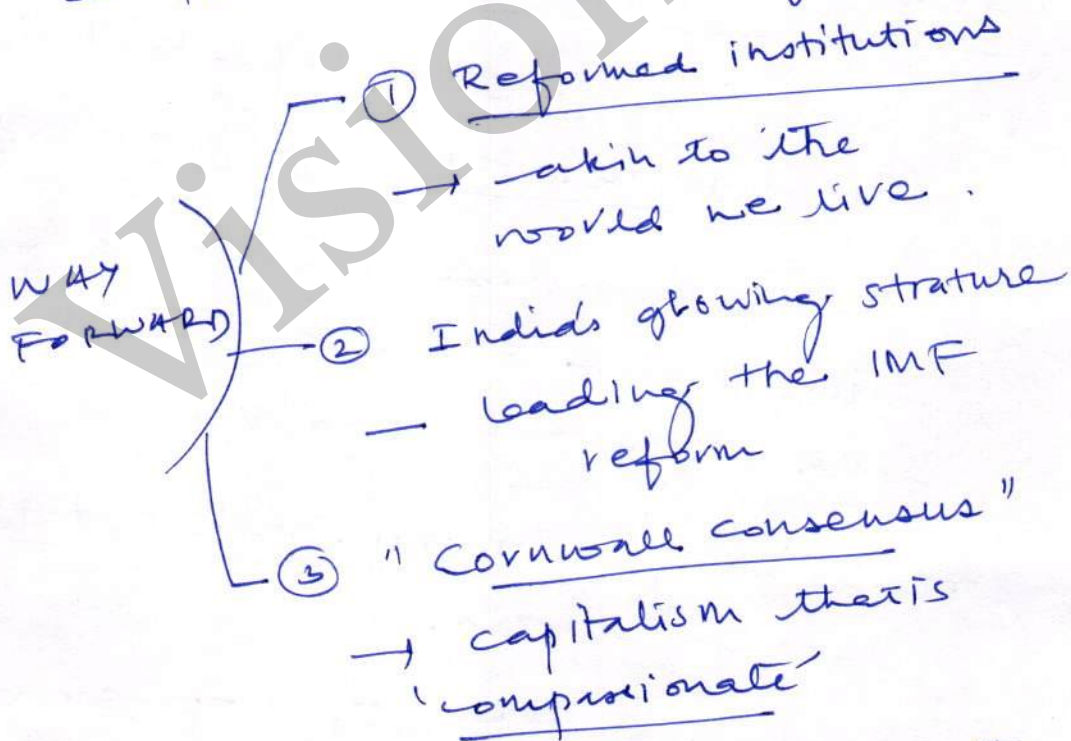 ① Reformed institutions
→ akin to the
world we live.
WAY
FORWARD
② India's growing strature
— leading the IMF
reform
③ "Cornwall consensus"
→ capitalism that is
'compassionate'
Vision